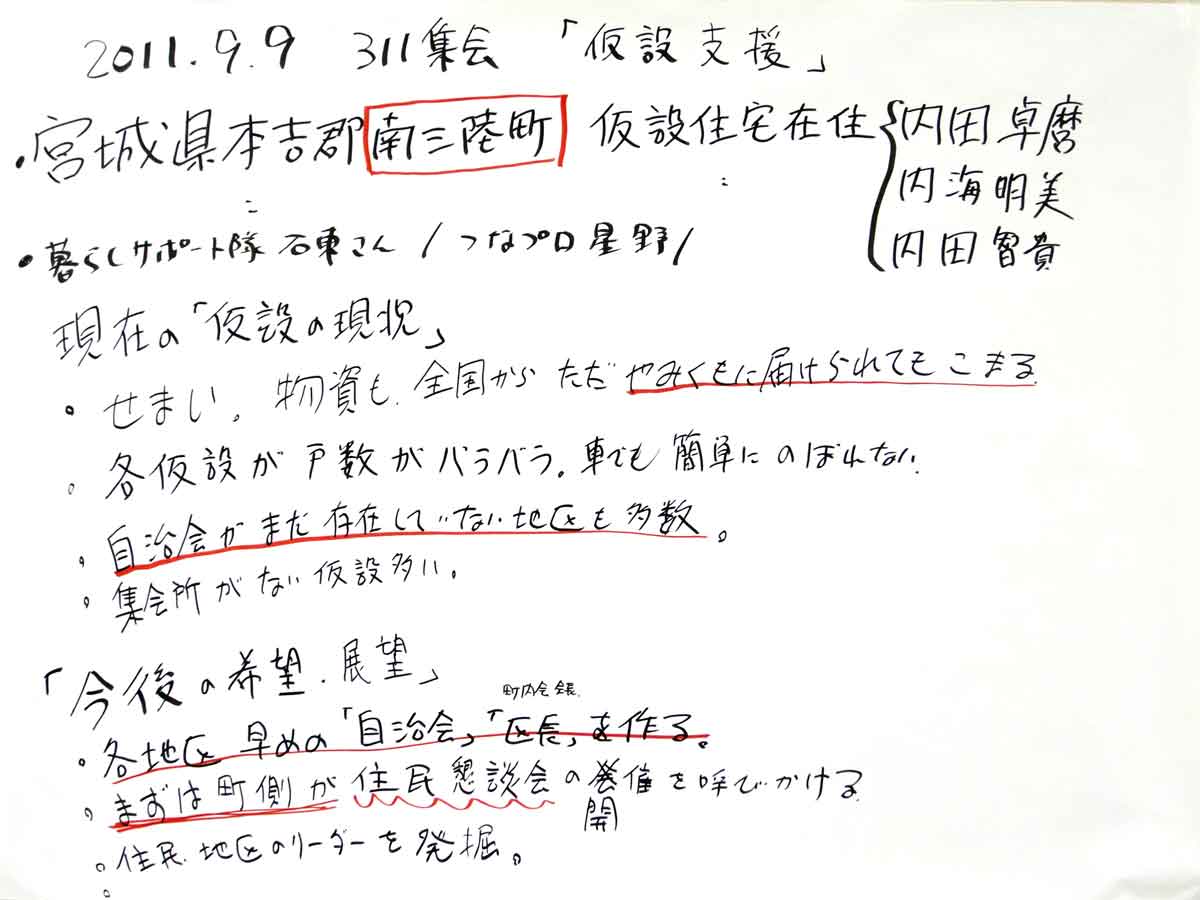 2011.9.9 311集会 「仮設支援」
・宮城県本吉郡 南三陸町 仮設住宅在住 { 内田卓磨
内海明美
内田智貴
・暮らしサポート隊 石東さん / つなプロ 星野 /
現在の「仮設の現状」
・せまい。物資も、全国からただやみくもに届けられてもこまる
・各仮設が戸数がバラバラ。車でも簡単にのぼれない
・自治会がまだ存在していない地区も多数。
・集会所がない仮設多い。
「今後の希望・展望」
町内会長
・各地区 早めの「自治会」「区長」を作る。
・まずは町側が住民懇談会の催を呼びかける
開
・住民、地区のリーダーを発掘。